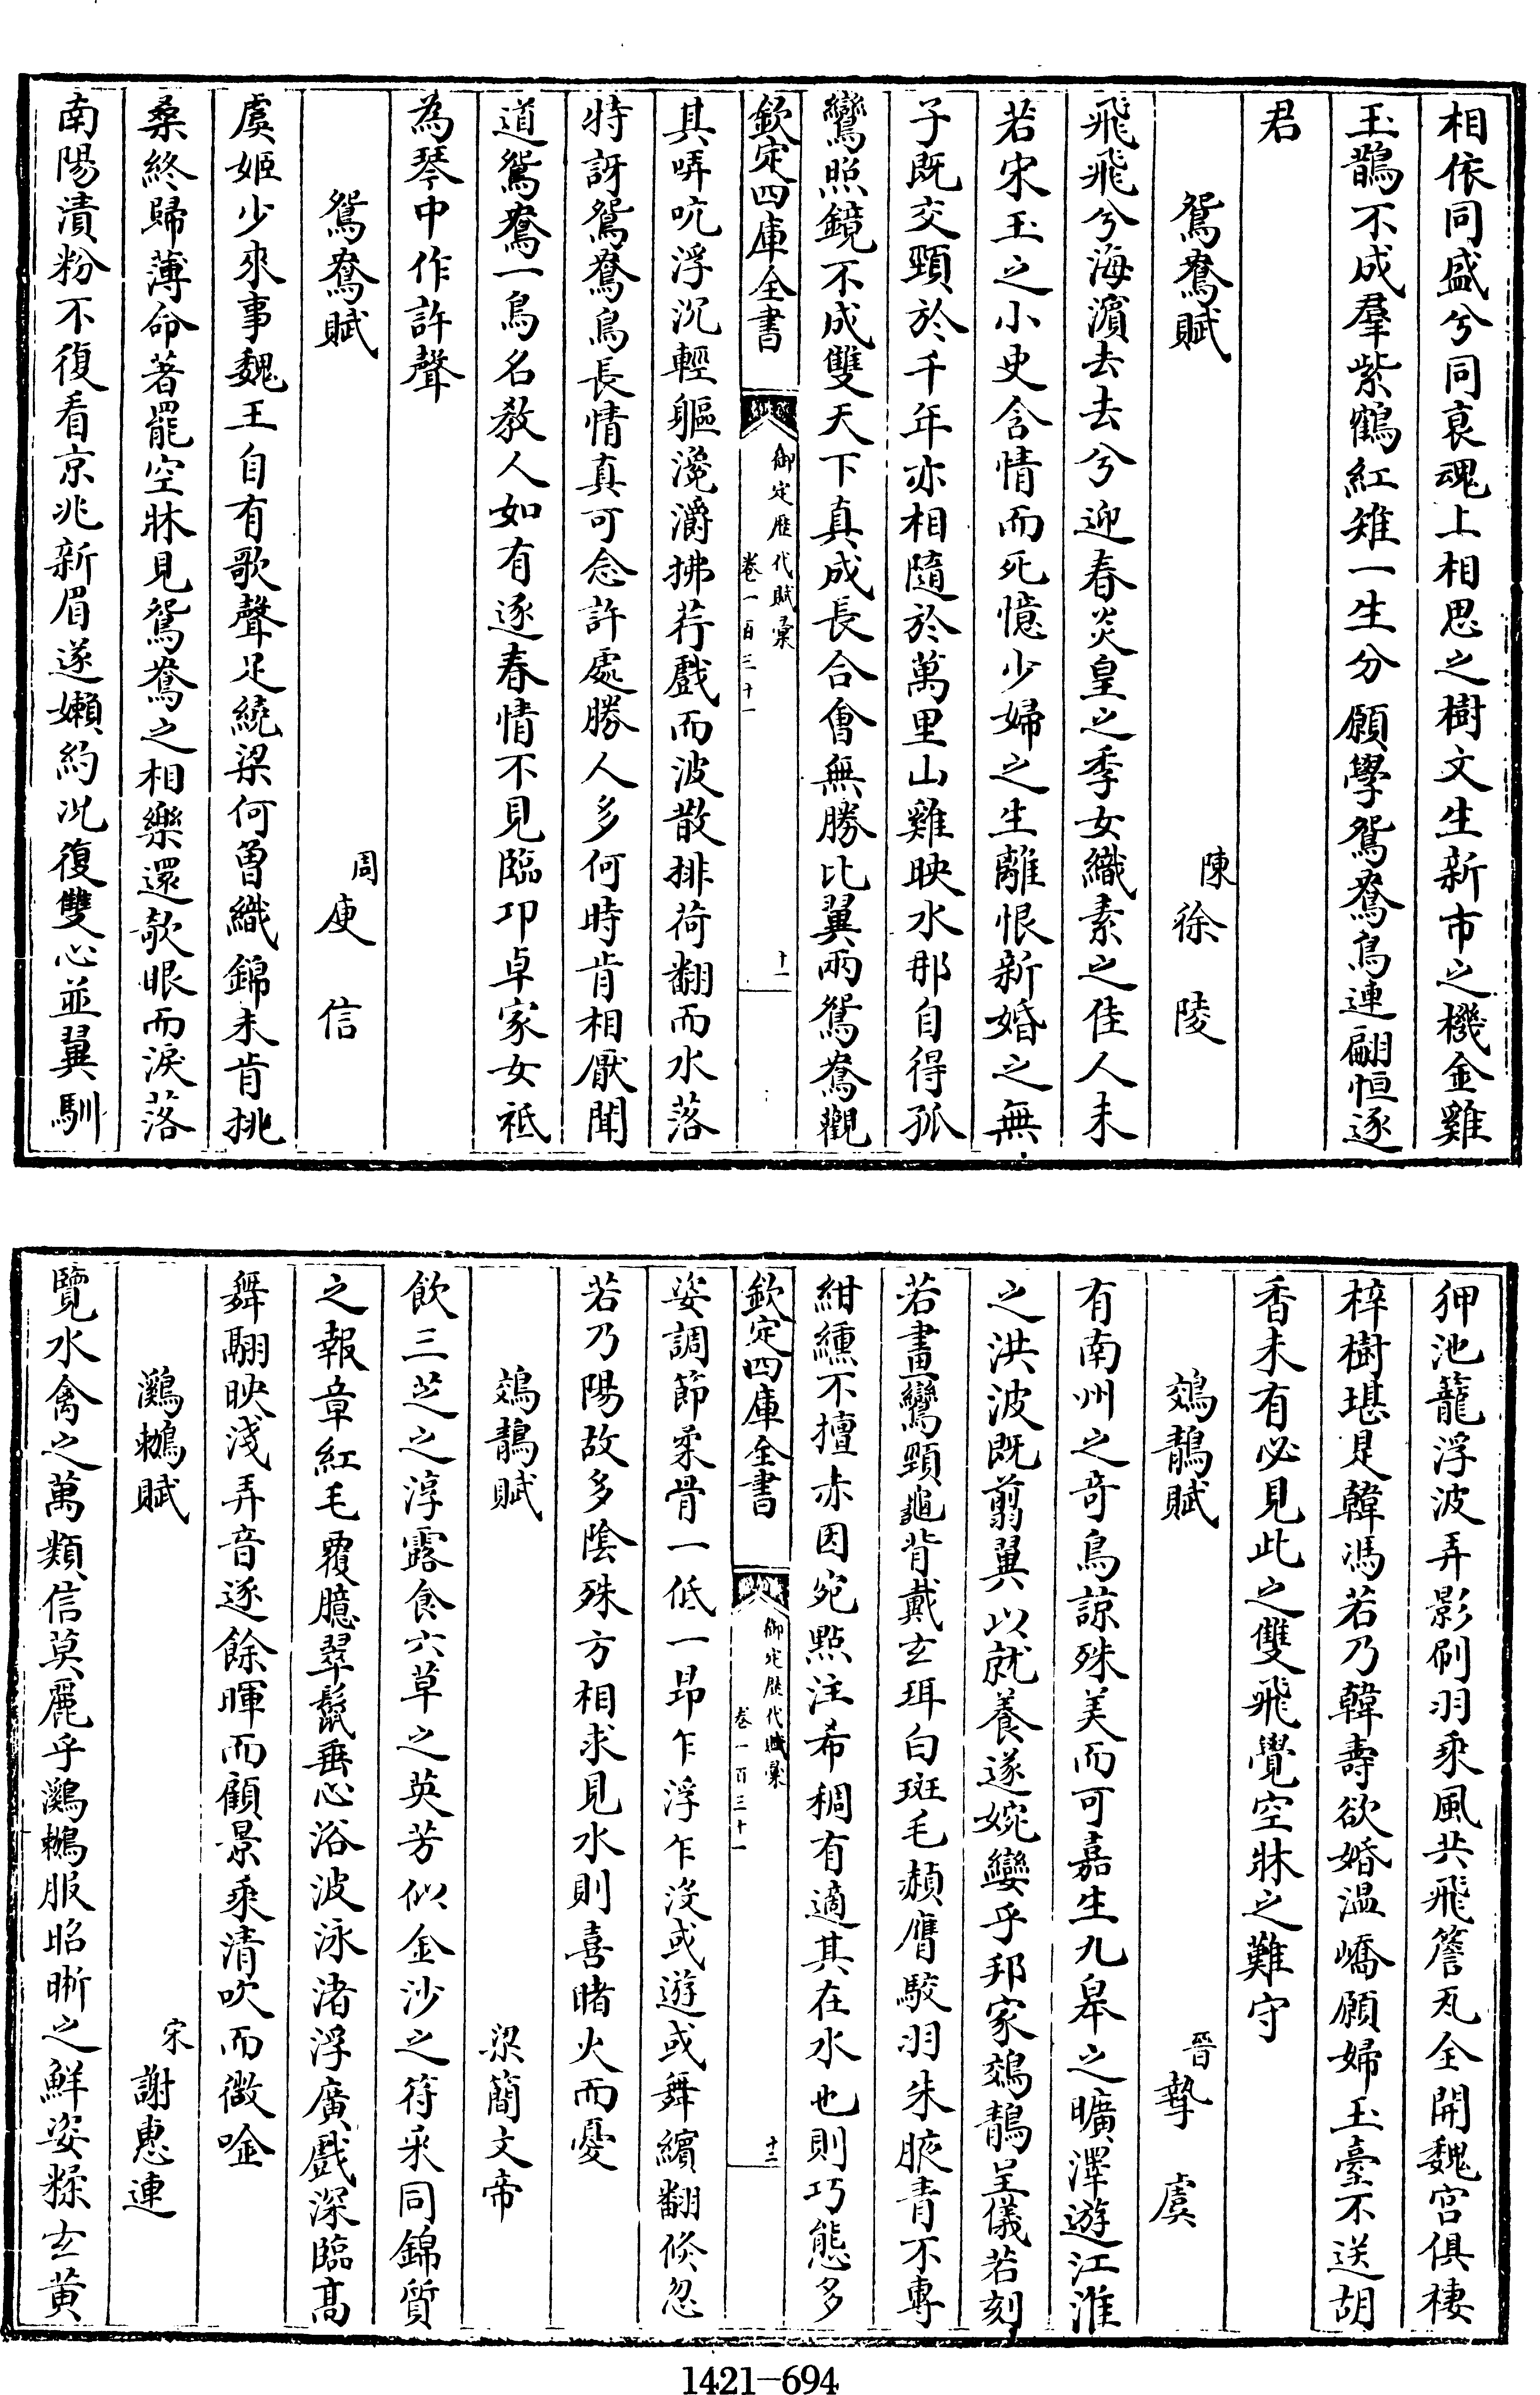 相依同盛兮同衰魂上相思之樹文生新市之機金雞
玉鵲不成羣紫鶴紅雉一生分願學鴛鴦鳥連翩恒逐
君
鴛鴦賦 陳徐陵
飛飛兮海濵去去兮迎春炎皇之季女織素之佳人未
若宋玉之小史含情而死憶少婦之生離恨新婚之無
子既交頸於千年亦相隨於萬里山雞映水那自得孤
鸞照鏡不成雙天下真成長合會無勝比翼兩鴛鴦觀
欽定四庫全書 御定歷代賦彙 卷一百三十一 十一
其哢吭浮沉輕軀瀺灂拂荇戲而波散排荷翻而水落
特訝鴛鴦鳥長情真可念許處勝人多何時肯相厭聞
道鴛鴦一鳥名教人如有逐春情不見臨卭卓家女祗
為琴中作許聲
鴛鴦賦 周庾信
虞姬少來事魏王自有歌聲足繞梁何曾織錦未肯挑
桑終歸薄命著罷空牀見鴛鴦之相樂還欹眼而淚落
南陽漬粉不復看京兆新眉遂嬾約况復雙心並翼馴
狎池籠浮波弄影刷羽乘風共飛簷瓦全開魏宮俱棲
梓樹堪是韓馮若乃韓壽欲婚温嶠願婦玉臺不送胡
香未有必見此之雙飛覺空牀之難守
鵁鶄賦 晉摯虞
有南州之奇鳥諒殊美而可嘉生九臯之曠澤遊江淮
之洪波既剪翼以就養遂婉孌乎邦家鵁鶄呈儀若刻
若畫鸞頸龜背戴玄珥白斑毛赬膺駮羽朱腋青不專
紺纁不擅赤因宛點注希稠有適其在水也則巧態多
欽定四庫全書 御定歷代賦彙 卷一百三十一 十二
姿調節柔骨一低一昂乍浮乍没或遊或舞繽翻倐忽
若乃陽故多陰殊方相求見水則喜睹火而憂
鵁鶄賦 梁簡文帝
飲三芝之淳露食六草之英芳似金沙之符采同錦質
之報章紅毛覆臆翠鬛垂心浴波泳渚浮廣戲深臨高
舞翮映淺弄音逐餘暉而顧景乘清吹而微唫
鸂鶒賦 宋謝惠連
覽水禽之萬類信莫麗乎鸂鶒服昭晰之鮮姿糅玄黄
1421-694